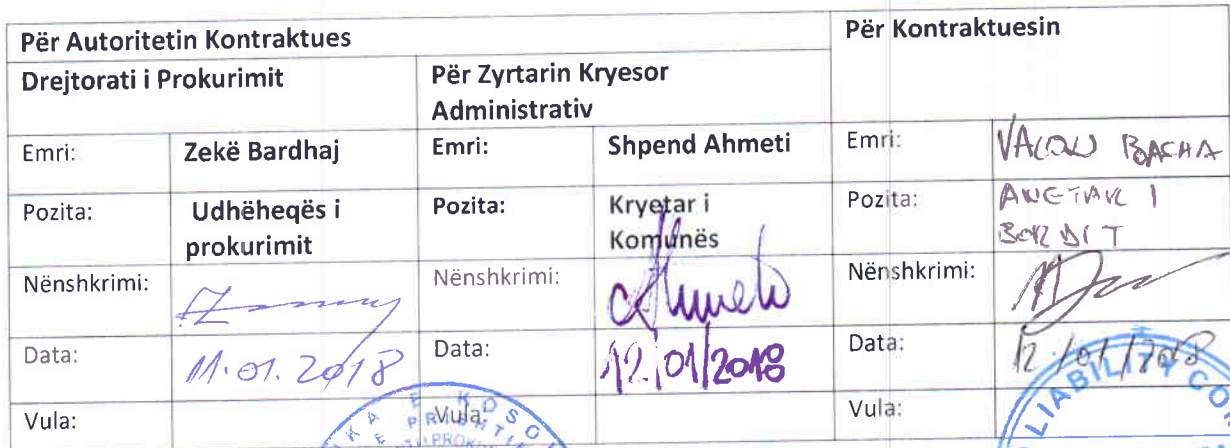 Për Autoritetin Kontraktues
Për Kontraktuesin
Drejtorati i Prokurimit
Për Zyrtarin Kryesor
Administrativ
Emri: Zekë Bardhaj Emri: Shpend Ahmeti Emri: VALON BACHA
Pozita: Udhëheqës i
prokurimit
Pozita: Kryetar i
Komunës
Pozita: ANETAR I
BORDIT
Nënshkrimi: Nënshkrimi: Ahmeti Nënshkrimi:
Data: 11.01.2018 Data: 12/01/2018 Data: 12/01/2018
Vula: Vula: Vula:
LIABILITY CO